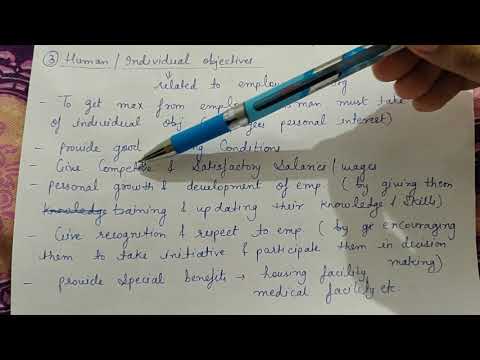 ③ Human / Individual objectives
↳ related to employ
- To get max from emplo man must take
of individual obj ees personal interest)
- provide good ng Conditions
- Give Compe ve & Satisfactory Salaries / wages
- personal growth & development of emp. ( by giving them
knowledge training & updating their knowledge & skills)
- Give recognition & respect to emp. ( by ge encouraging
them to take initiative & participate them in decision
making)
- provide special benefits → housing facility
medical facility etc.